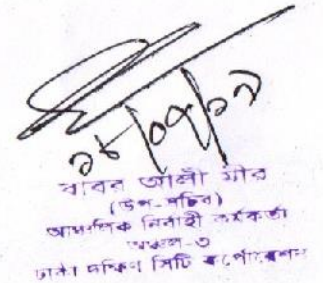 ১৮/০৭/১৯
বাবর আলী মীর
(উপ-সচিব)
আঞ্চলিক নির্বাহী কর্মকর্তা
অঞ্চল-৩
ঢাকা দক্ষিণ সিটি কর্পোরেশন